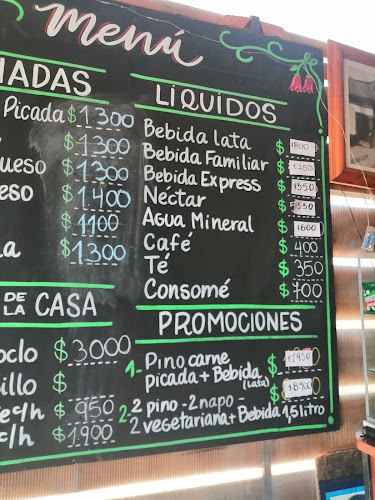 menú
NADAS
Picada $1300
$1300
ueso $1300
eso $1.400
$1100
a $1.300
DE LA CASA
oclo $3000
illo $
c/h $950
c/h $1.900
LÍQUIDOS
Bebida lata $800
Bebida Familiar $1750
Bebida Express $550
Néctar $550
Agua Mineral $600
Café $400
Té $350
Consomé $700
PROMOCIONES
1- Pino carne $1950
picada + Bebida (lata)
2- 2 pino - 2 napo -
2 vegetariana + Bebida 1,5 litro